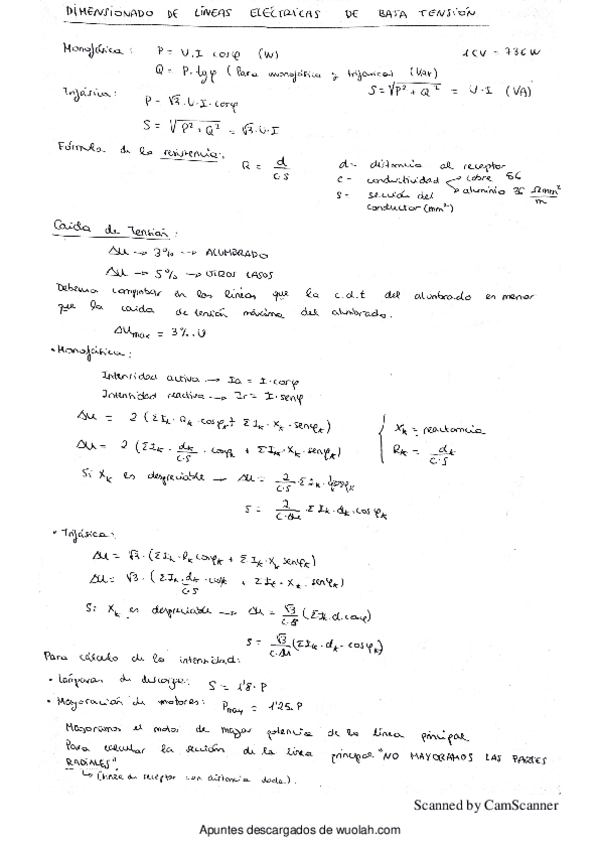 DIMENSIONADO DE LÍNEAS ELÉCTRICAS DE BAJA TENSIÓN
Monofásica: P = U.I cosφ (W) 1CV - 736W
Q = P.tgφ (Para monofásica y trifásica) (Var)
Trifásica: S = √P² + Q² = U·I (VA)
P = √3·U·I·cosφ
S = √P² + Q² = √3·U·I
Fórmula de la resistencia: R = d / c·s
d - distancia al receptor
c - conductividad cobre 56
aluminio 35 Ωmm² / m
s - sección del
conductor (mm²)
Caída de Tensión:
Δu → 3% → ALUMBRADO
Δu → 5% → OTROS CASOS
Debemos comprobar en las líneas que la c.d.t del alumbrado es menor
que la caída de tensión máxima del alumbrado.
Δu max = 3%.U
• Monofásica:
Intensidad activa → Ia = I·cosφ
Intensidad reactiva → Ir = I·senφ
Δu = 2 (ΣIk·Rk·cosφk + ΣIk·Xk·senφk)
Xk = reactancia
Δu = 2 (ΣIk·dk/c·s·cosφk + ΣIk·Xk·senφk)
Rk = dk / c·s
Si Xk es despreciable → Δu = 2/c·s·ΣIk·dk·cosφk
S = 2/c·Δu·ΣIk·dk·cosφk
• Trifásica:
Δu = √3·(ΣIk·Rk cosφk + ΣIk·Xk senφk)
Δu = √3·(ΣIk·dk/c·s·cosφk + ΣIk·Xk·senφk)
Si Xk es despreciable → Δu = √3/c·s (ΣIk·d·cosφ)
S = √3/c·Δu (ΣIk·dk·cosφk)
Para cálculo de la intensidad:
• Lámparas de descarga: S = 1'8·P
• Mayoración de motores: Pmay = 1'25·P
Mayoramos el motor de mayor potencia de la línea principal.
Para calcular la sección de la línea principal "NO MAYORAMOS LAS PARTES
RADIALES".
↳ (línea de receptor con distancia dada).
Scanned by CamScanner
Apuntes descargados de wuolah.com